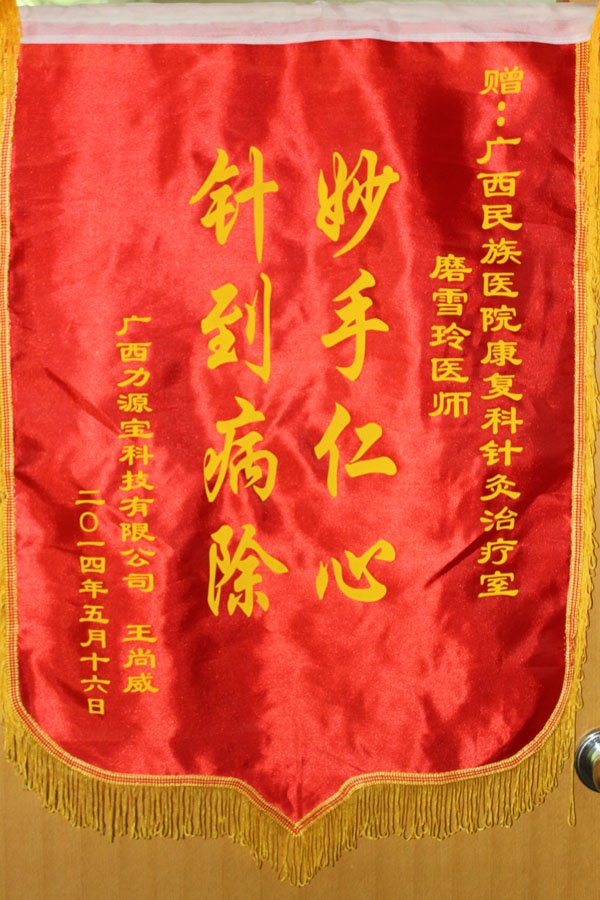 赠:广西民族医院康复科针灸治疗室
磨雪玲医师
妙手仁心
针到病除
广西力源宝科技有限公司 王尚威
二〇一四年五月十六日